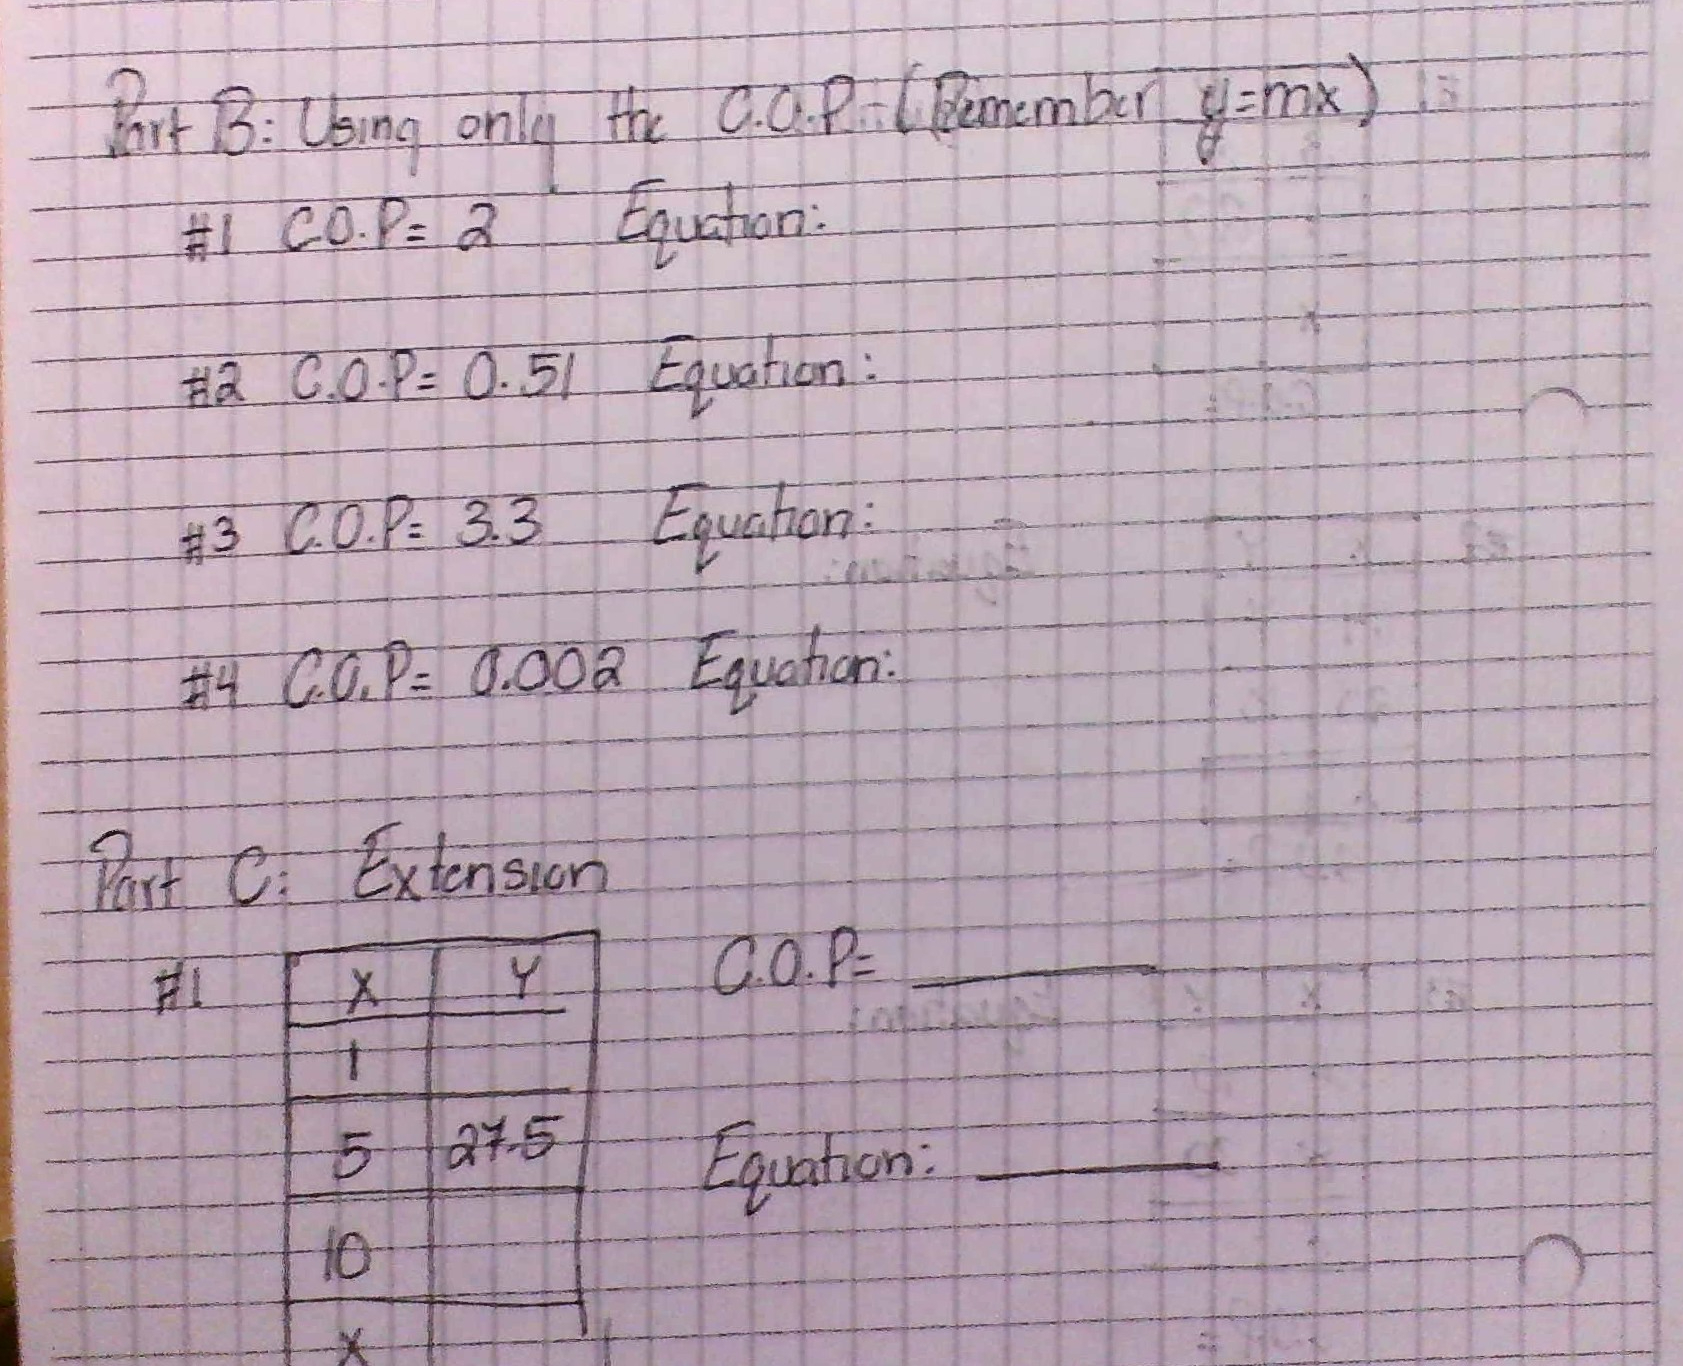 Part B: Using only the C.O.P= (Remember y=mx)
#1 C.O.P= 2 Equation:
#2 C.O.P= 0.51 Equation:
#3 C.O.P= 3.3 Equation:
#4 C.O.P= 0.002 Equation:
Part C: Extension
#1
X Y
1
5 27.5
10
X
C.O.P=
Equation: